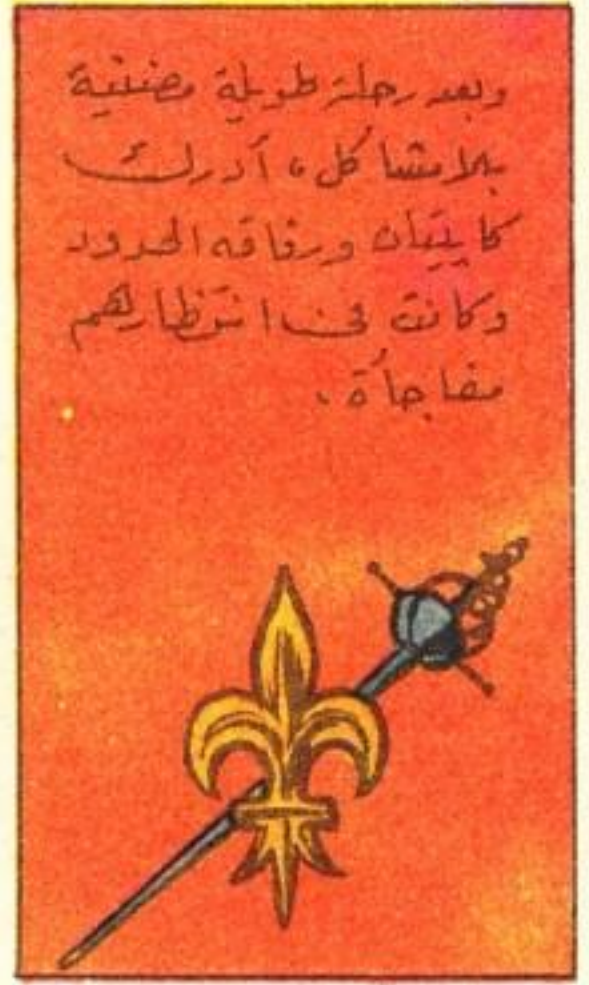 وبعد رحلة طويلة مضنية
بلا مشاكل، أدرك
كابيتان ورفاقه الحدود
وكانت في انتظارهم
مفاجأة.